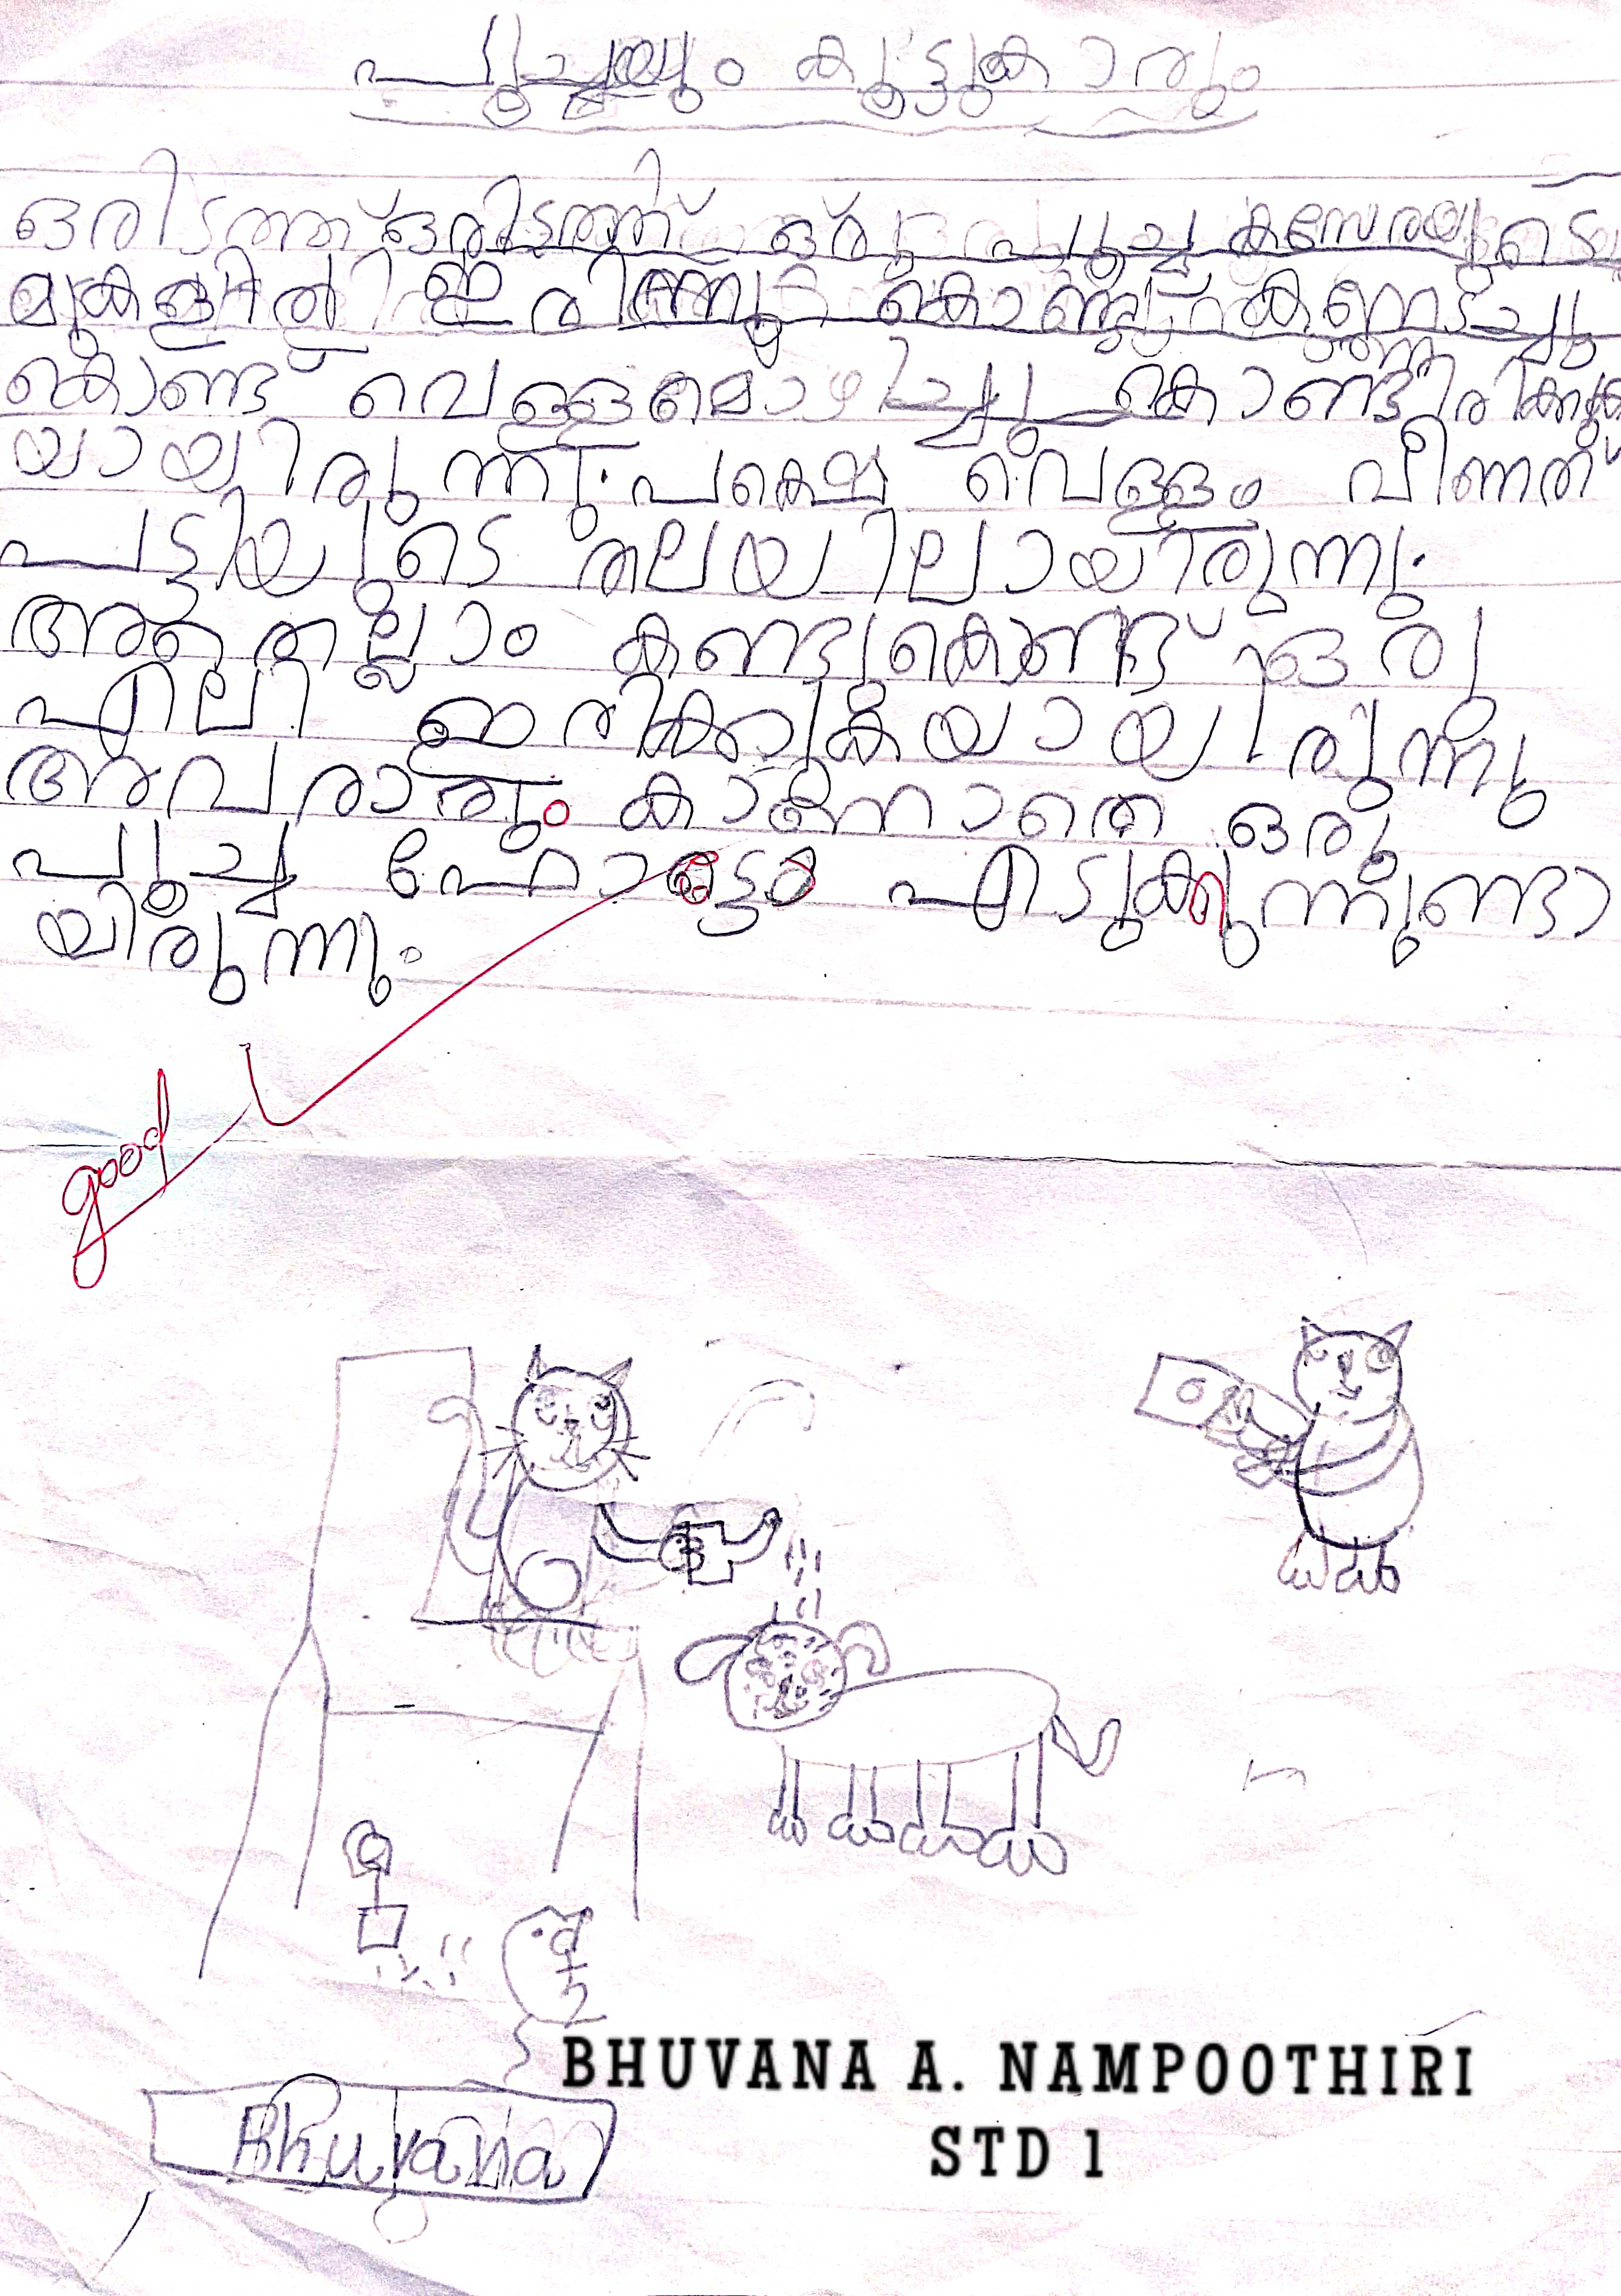 പൂച്ചയും കൂട്ടുകാരും
ഒരിടത്ത് ഒരിടത്ത് ഒരു പൂച്ച കസേരയുടെ
മുകളിൽ ഇരുന്നു കൊണ്ട് കണ്ണടച്ചു
കൊണ്ട് വെള്ളമൊഴിച്ചു കൊണ്ടിരിക്കുക
യായിരുന്നു. പക്ഷെ വെള്ളം വീണത്
പട്ടിയുടെ തലയിലായിരുന്നു.
അതെല്ലാം കണ്ടുകൊണ്ട് ഒരു
എലി ഇരിക്കുകയായിരുന്നു
അവരാരും കാണാതെ ഒരു
പൂച്ച ഫോട്ടോ എടുക്കുന്നുണ്ടാ
യിരുന്നു.
good
BHUVANA A. NAMPOOTHIRI
STD 1
Bhuvana